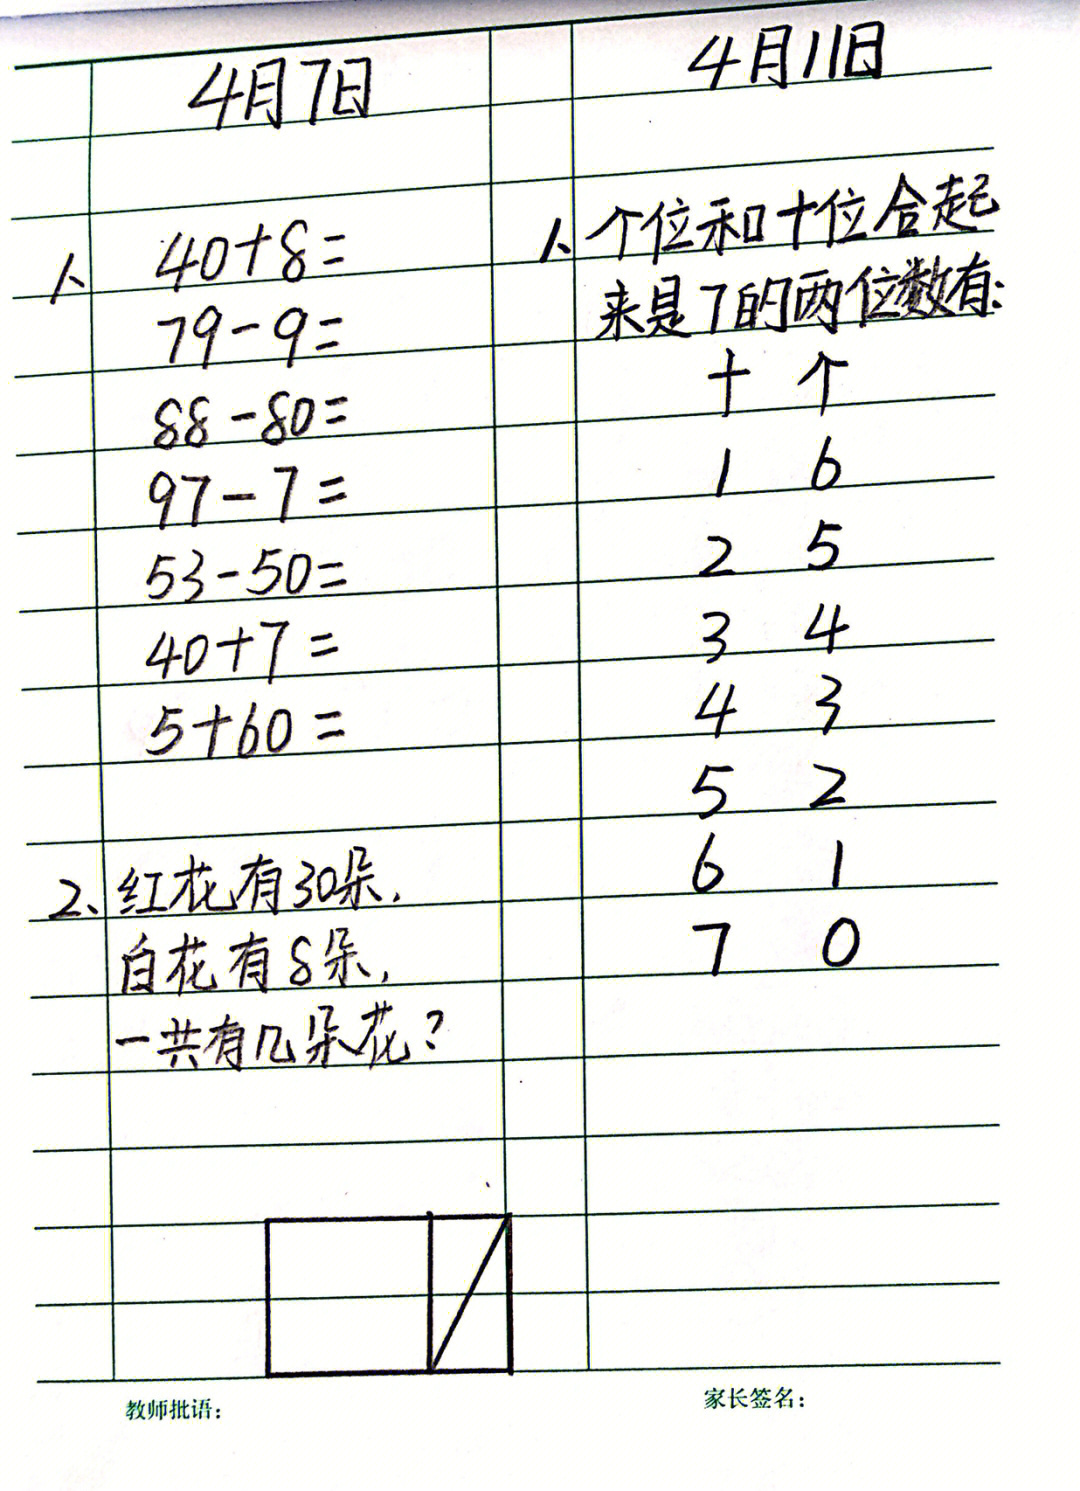 4月7日
1、 40+8=
79-9=
88-80=
97-7=
53-50=
40+7=
5+60=
2、红花有30朵,
白花有8朵,
一共有几朵花?
教师批语:
4月11日
1、个位和十位合起
来是7的两位数有:
十 个
1 6
2 5
3 4
4 3
5 2
6 1
7 0
家长签名: